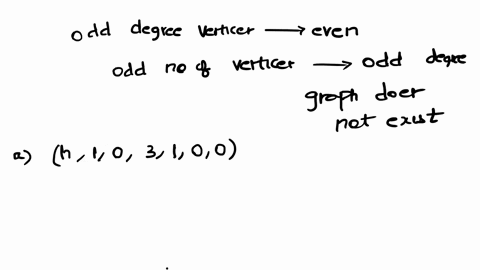 odd degree verticer → even
odd no of verticer → odd degree
graph doer
not exist
a) (h, 1, 0, 3, 1, 0, 0)